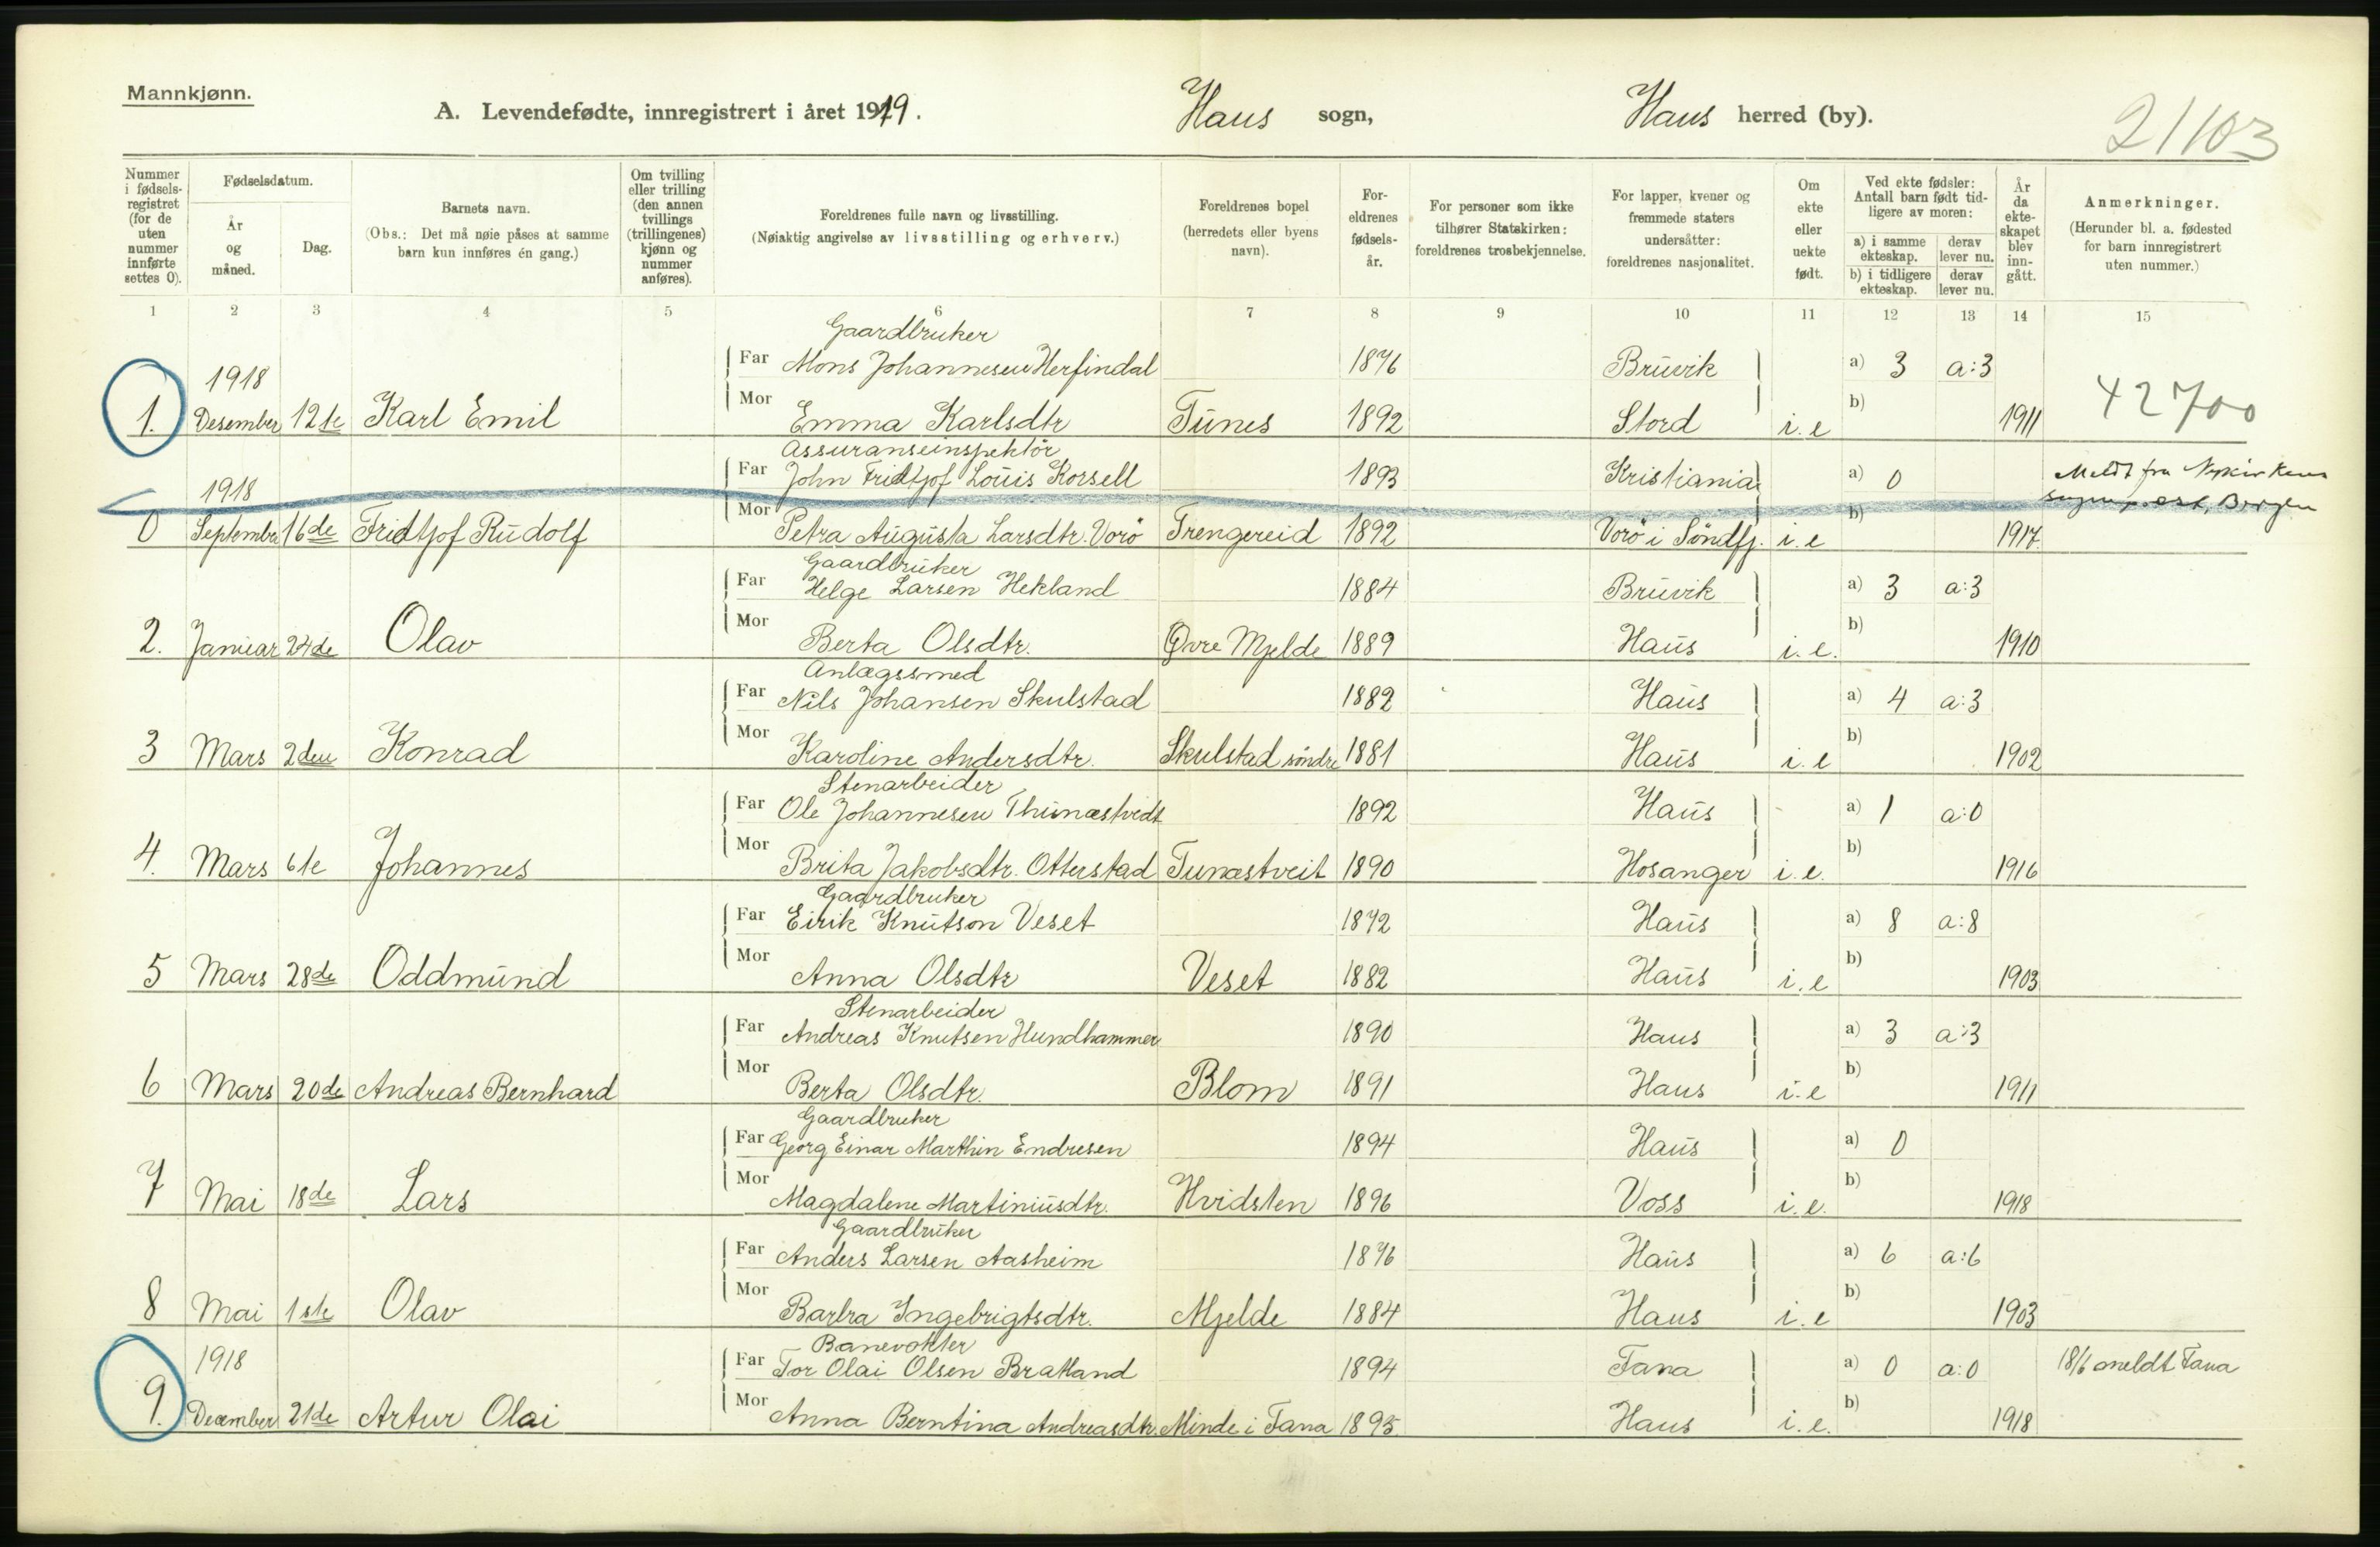 Mannkjønn.
A. Levendefødte, innregistrert i året 1919.
Haus sogn,
Haus herred (by).
21103
Nummer i fødsels-registret (for de uten nummer innførte settes 0).
Fødselsdatum.
År og måned.
Dag.
Barnets navn.
(Obs.: Det må nøie påses at samme barn kun innføres én gang.)
Om tvilling eller trilling (den annen tvillings (trillingenes) kjønn og nummer anføres).
Foreldrenes fulle navn og livsstilling.
(Nøiaktig angivelse av livsstilling og erhverv.)
Foreldrenes bopel (herredets eller byens navn).
For-eldrenes fødsels-år.
For personer som ikke tilhører Statskirken: foreldrenes trosbekjennelse.
For lapper, kvener og fremmede staters undersåtter: foreldrenes nasjonalitet.
Om ekte eller uekte født.
Ved ekte fødsler: Antall barn født tid-ligere av moren:
a) i samme ekteskap.
derav lever nu.
b) i tidligere ekteskap.
derav lever nu.
År da ekte-skapet blev inn-gått.
Anmerkninger.
(Herunder bl. a. fødested for barn innregistrert uten nummer.)
1 2 3 4 5 6 7 8 9 10 11 12 13 14 15
Gaardbruker
1918 Far Mons Johannesen Herfindal 1876 Bruvik a) 3 a:3
42700
1. Desember 12te Karl Emil Mor Emma Karlsdtr Tunes 1892 Stord i.e b) 1911
Assuranseinspektør
1918 Far John Fridtjof Louis Korsell 1893 Kristiania a) 0 Meldt fra Nykirkens
sogneprest, Bergen
0 September 16de Fridtjof Rudolf Mor Petra Augusta Larsdtr. Vorø Trengereid 1892 Vorø i Søndfj. i.e b) 1917.
Gaardbruker
Far Helge Larsen Hekland 1884 Bruvik a) 3 a:3
2. Januar 24de Olav Mor Berta Olsdtr. Øvre Mjelde 1889 Haus i.e. b) 1910
Anlægssmed
Far Nils Johansen Skulstad 1882 Haus a) 4 a:3
3 Mars 2den Konrad Mor Karoline Andersdtr. Skulstad søndre 1881 Haus i.e b) 1902
Stenarbeider
Far Ole Johannesen Thunestvedt 1892 Haus a) 1 a:0
4. Mars 6te Johannes Mor Brita Jakobsdtr. Otterstad Tunæstveit 1890 Hosanger i.e. b) 1916
Gaardbruker
Far Eirik Knutson Veset 1872 Haus a) 8 a:8
5 Mars 28de Oddmund Mor Anna Olsdtr Veset 1882 Haus i.e b) 1903
Stenarbeider
Far Andreas Knutsen Hundhammer 1890 Haus a) 3 a:3
6 Mars 20de Andreas Bernhard Mor Berta Olsdtr. Blom 1891 Haus i.e b) 1911
Gaardbruker
Far Georg Einar Marthin Endresen 1894 Haus a) 0
7 Mai 18de Lars Mor Magdalene Martiniusdtr. Hvidsten 1896 Voss i.e. b) 1918
Gaardbruker
Far Anders Larsen Aasheim 1876 Haus a) 6 a:6
8 Mai 1ste Olav Mor Barbra Ingebrigtsdtr. Mjelde 1884 Haus i.e b) 1903
Banevokter
1918 Far Tor Olai Olsen Bratland 1894 Fana a) 0 a:0 18/6 meldt Fana
9. December 21de Artur Olai Mor Anna Berntina Andreasdtr. Minde i Fana 1895 Haus i.e. b) 1918